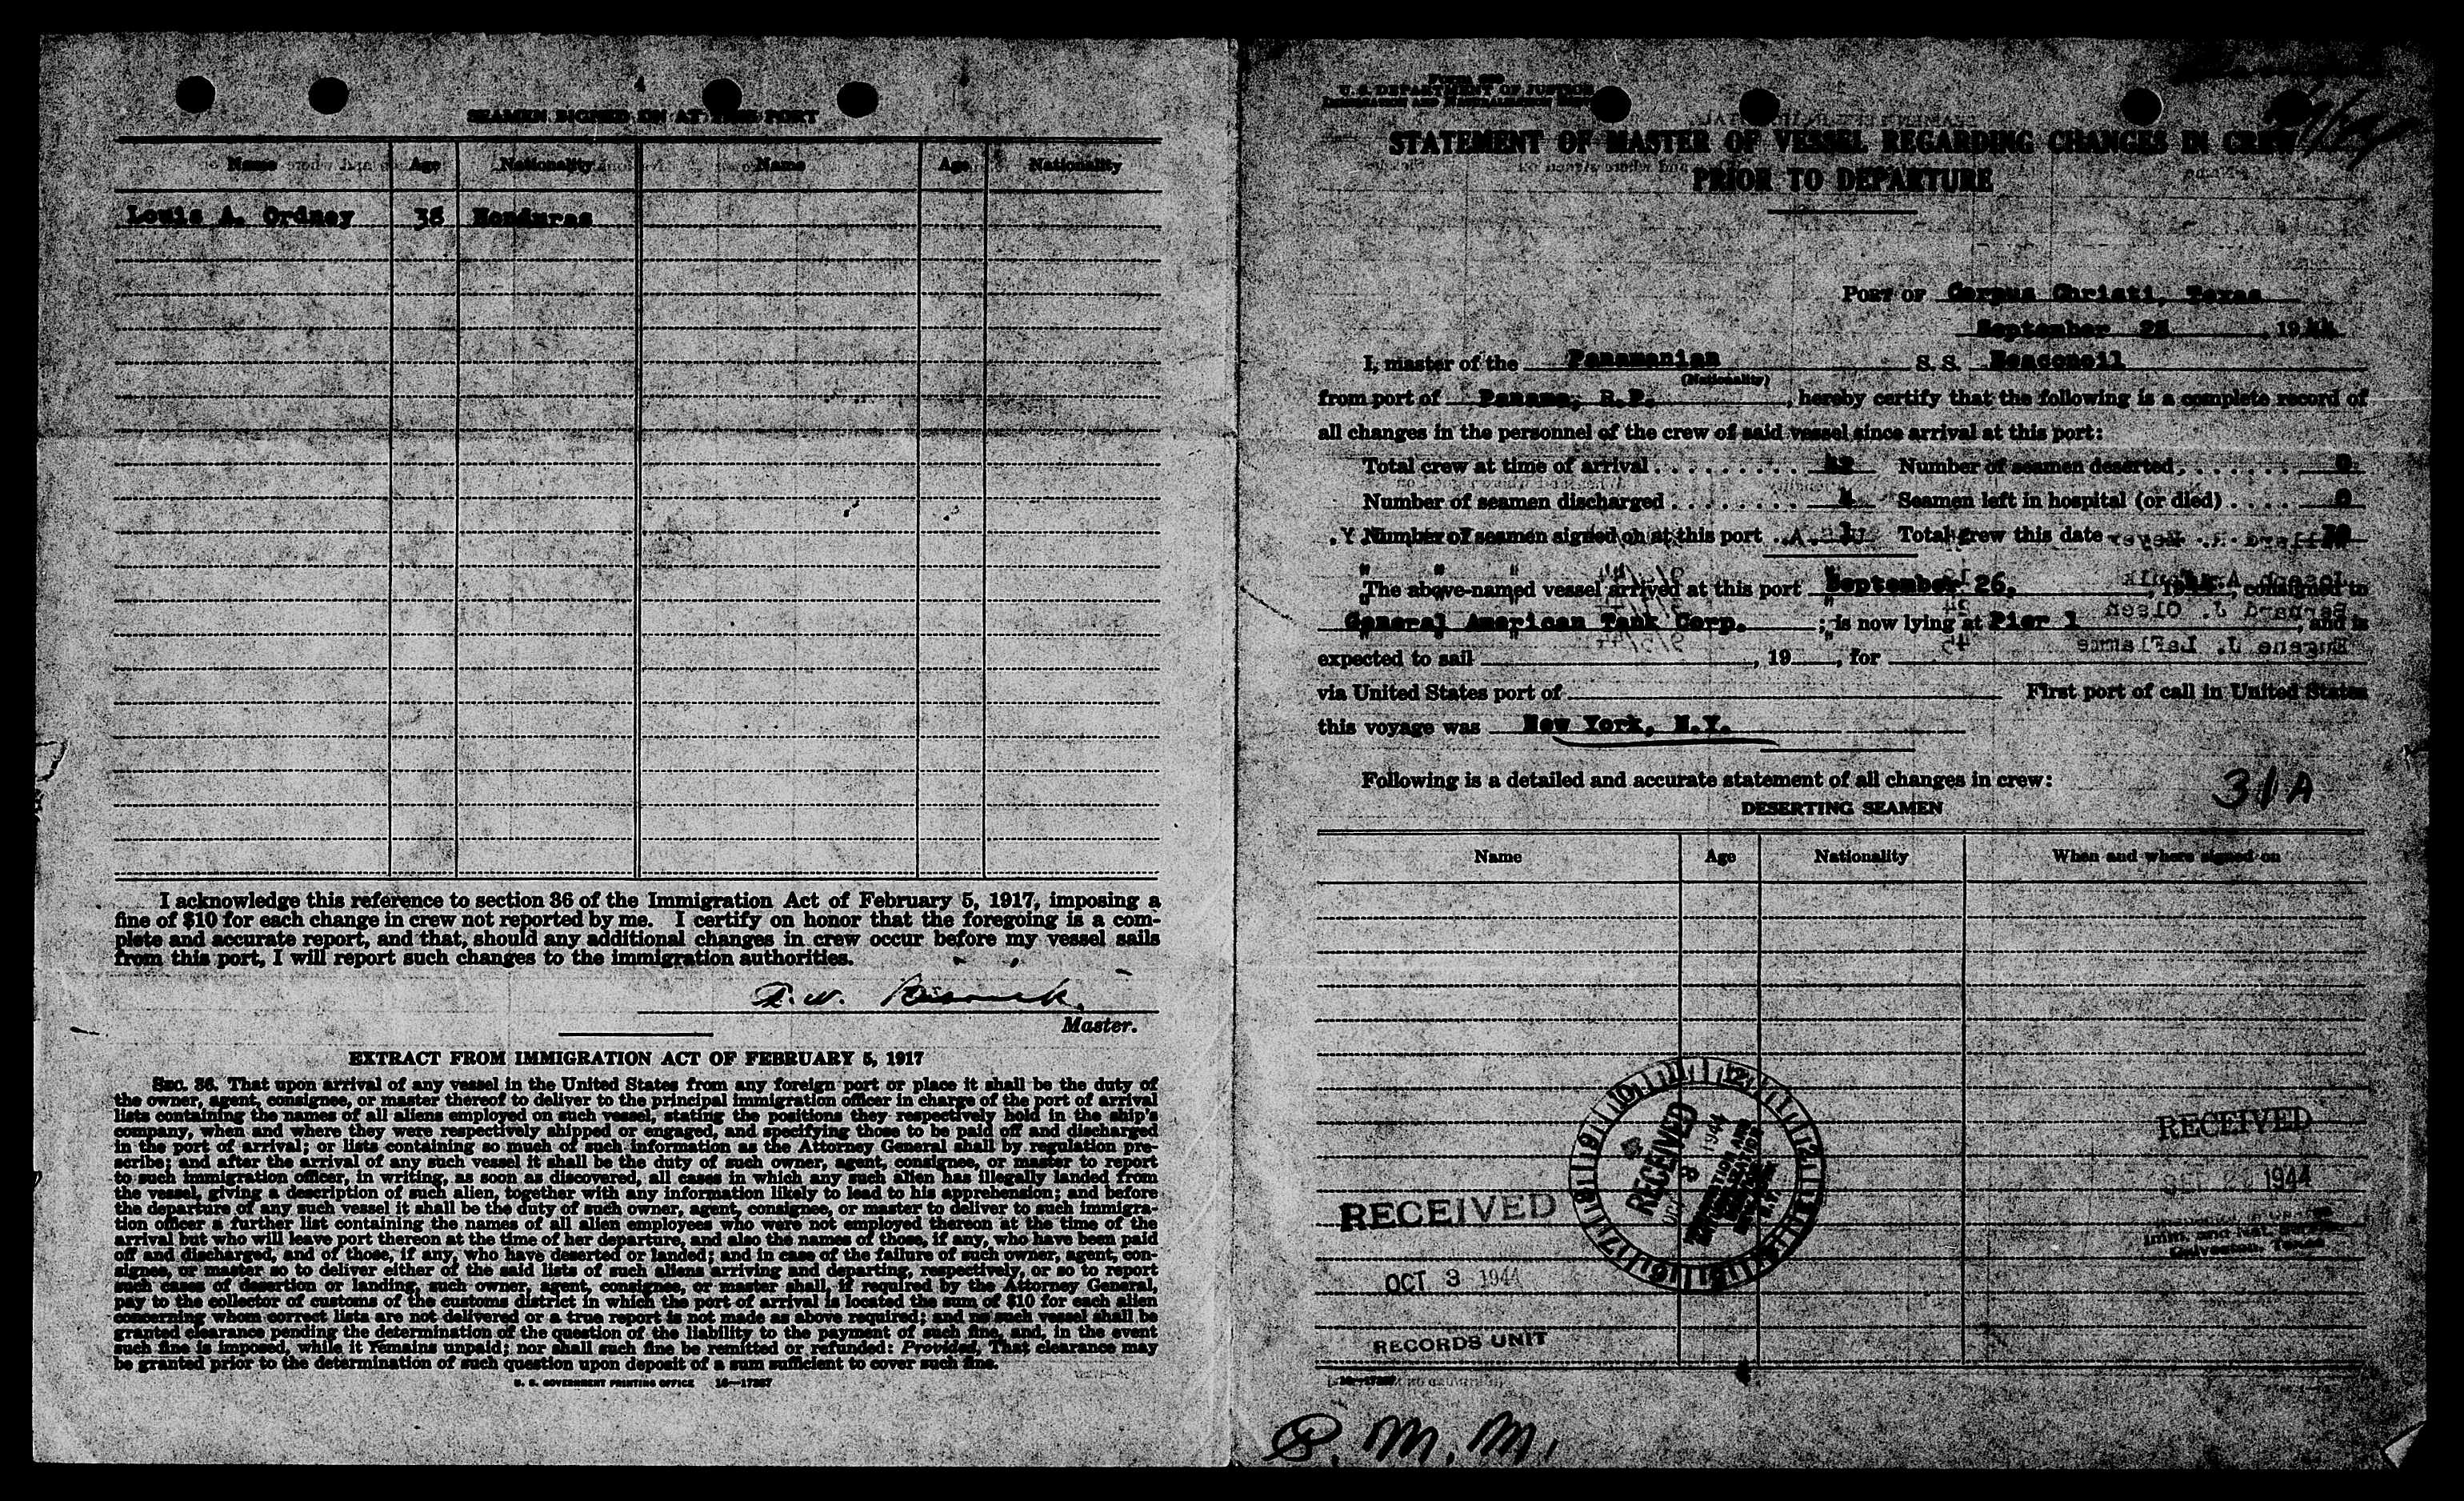 4
SEAMEN SIGNED ON AT THIS PORT
Name Age Nationality Name Age Nationality
Louis A. Ordney 38 Honduras
I acknowledge this reference to section 36 of the Immigration Act of February 5, 1917, imposing a
fine of $10 for each change in crew not reported by me. I certify on honor that the foregoing is a com-
plete and accurate report, and that, should any additional changes in crew occur before my vessel sails
from this port, I will report such changes to the immigration authorities.
Master.
EXTRACT FROM IMMIGRATION ACT OF FEBRUARY 5, 1917
SEC. 36. That upon arrival of any vessel in the United States from any foreign port or place it shall be the duty of
the owner, agent, consignee, or master thereof to deliver to the principal immigration officer in charge of the port of arrival
lists containing the names of all aliens employed on such vessel, stating the positions they respectively hold in the ship's
company, when and where they were respectively shipped or engaged, and specifying those to be paid off and discharged
in the port of arrival; or lists containing so much of such information as the Attorney General shall by regulation pre-
scribe; and after the arrival of any such vessel it shall be the duty of such owner, agent, consignee, or master to report
to such immigration officer, in writing, as soon as discovered, all cases in which any such alien has illegally landed from
the vessel, giving a description of such alien, together with any information likely to lead to his apprehension; and before
the departure of any such vessel it shall be the duty of such owner, agent, consignee, or master to deliver to such immigra-
tion officer a further list containing the names of all alien employees who were not employed thereon at the time of the
arrival but who will leave port thereon at the time of her departure, and also the names of those, if any, who have been paid
off and discharged, and of those, if any, who have deserted or landed; and in case of the failure of such owner, agent, con-
signee, or master so to deliver either of the said lists of such aliens arriving and departing, respectively, or so to report
such cases of desertion or landing, such owner, agent, consignee, or master shall, if required by the Attorney General,
pay to the collector of customs of the customs district in which the port of arrival is located the sum of $10 for each alien
concerning whom correct lists are not delivered or a true report is not made as above required; and no such vessel shall be
granted clearance pending the determination of the question of the liability to the payment of such fine, and, in the event
such fine is imposed, while it remains unpaid; nor shall such fine be remitted or refunded: Provided, That clearance may
be granted prior to the determination of such question upon deposit of a sum sufficient to cover such fine.
U. S. GOVERNMENT PRINTING OFFICE 16—17267
U. S. DEPARTMENT OF JUSTICE
STATEMENT OF MASTER OF VESSEL REGARDING CHANGES IN CREW
PRIOR TO DEPARTURE
PORT OF Corpus Christi, Texas
September 28, 1944
I, master of the Panamanian S. S. Beaconoil
(Nationality)
from port of Panama, R.P., hereby certify that the following is a complete record of
all changes in the personnel of the crew of said vessel since arrival at this port:
Total crew at time of arrival 42 Number of seamen deserted 0
Number of seamen discharged 4 Seamen left in hospital (or died) 0
Number of seamen signed on at this port 1 Total crew this date 39
The above-named vessel arrived at this port September 26, 1944, consigned to
General American Tank Corp. ; is now lying at Pier 1, and is
expected to sail , 19 , for
via United States port of First port of call in United States
this voyage was New York, N.Y.
Following is a detailed and accurate statement of all changes in crew:
31A
DESERTING SEAMEN
Name Age Nationality When and where signed on
RECEIVED
OCT 3 1944
RECORDS UNIT
RECEIVED
OCT 3 1944
IMMIGRATION AND
NATURALIZATION
RECEIVED
1944
Imm. and Nat. Service
Galveston, Texas
16—17267
P. M. M.